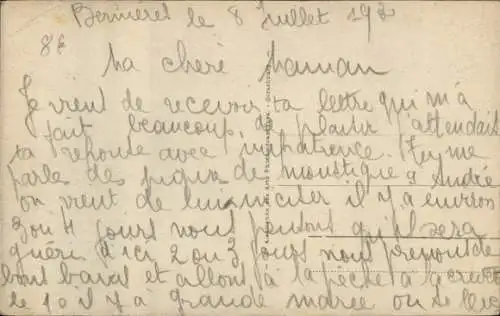 Bernieres le 8 Juillet 19
8e
Ma chere Maman
Je vient de recevoir ta lettre qui m'a
fait beaucoup de plaisir attendait
ta reponse avec impatience. Tu me
parle des piqur de moustique André
on vient de lui inciter il y a environ
3 ou 4 jours nous pensons qu'il sera
guéri d'ici 2 ou 3 jours nous prenons de
bons bains et allons à la pêche a la crevette
le 10 il y a grande maree on